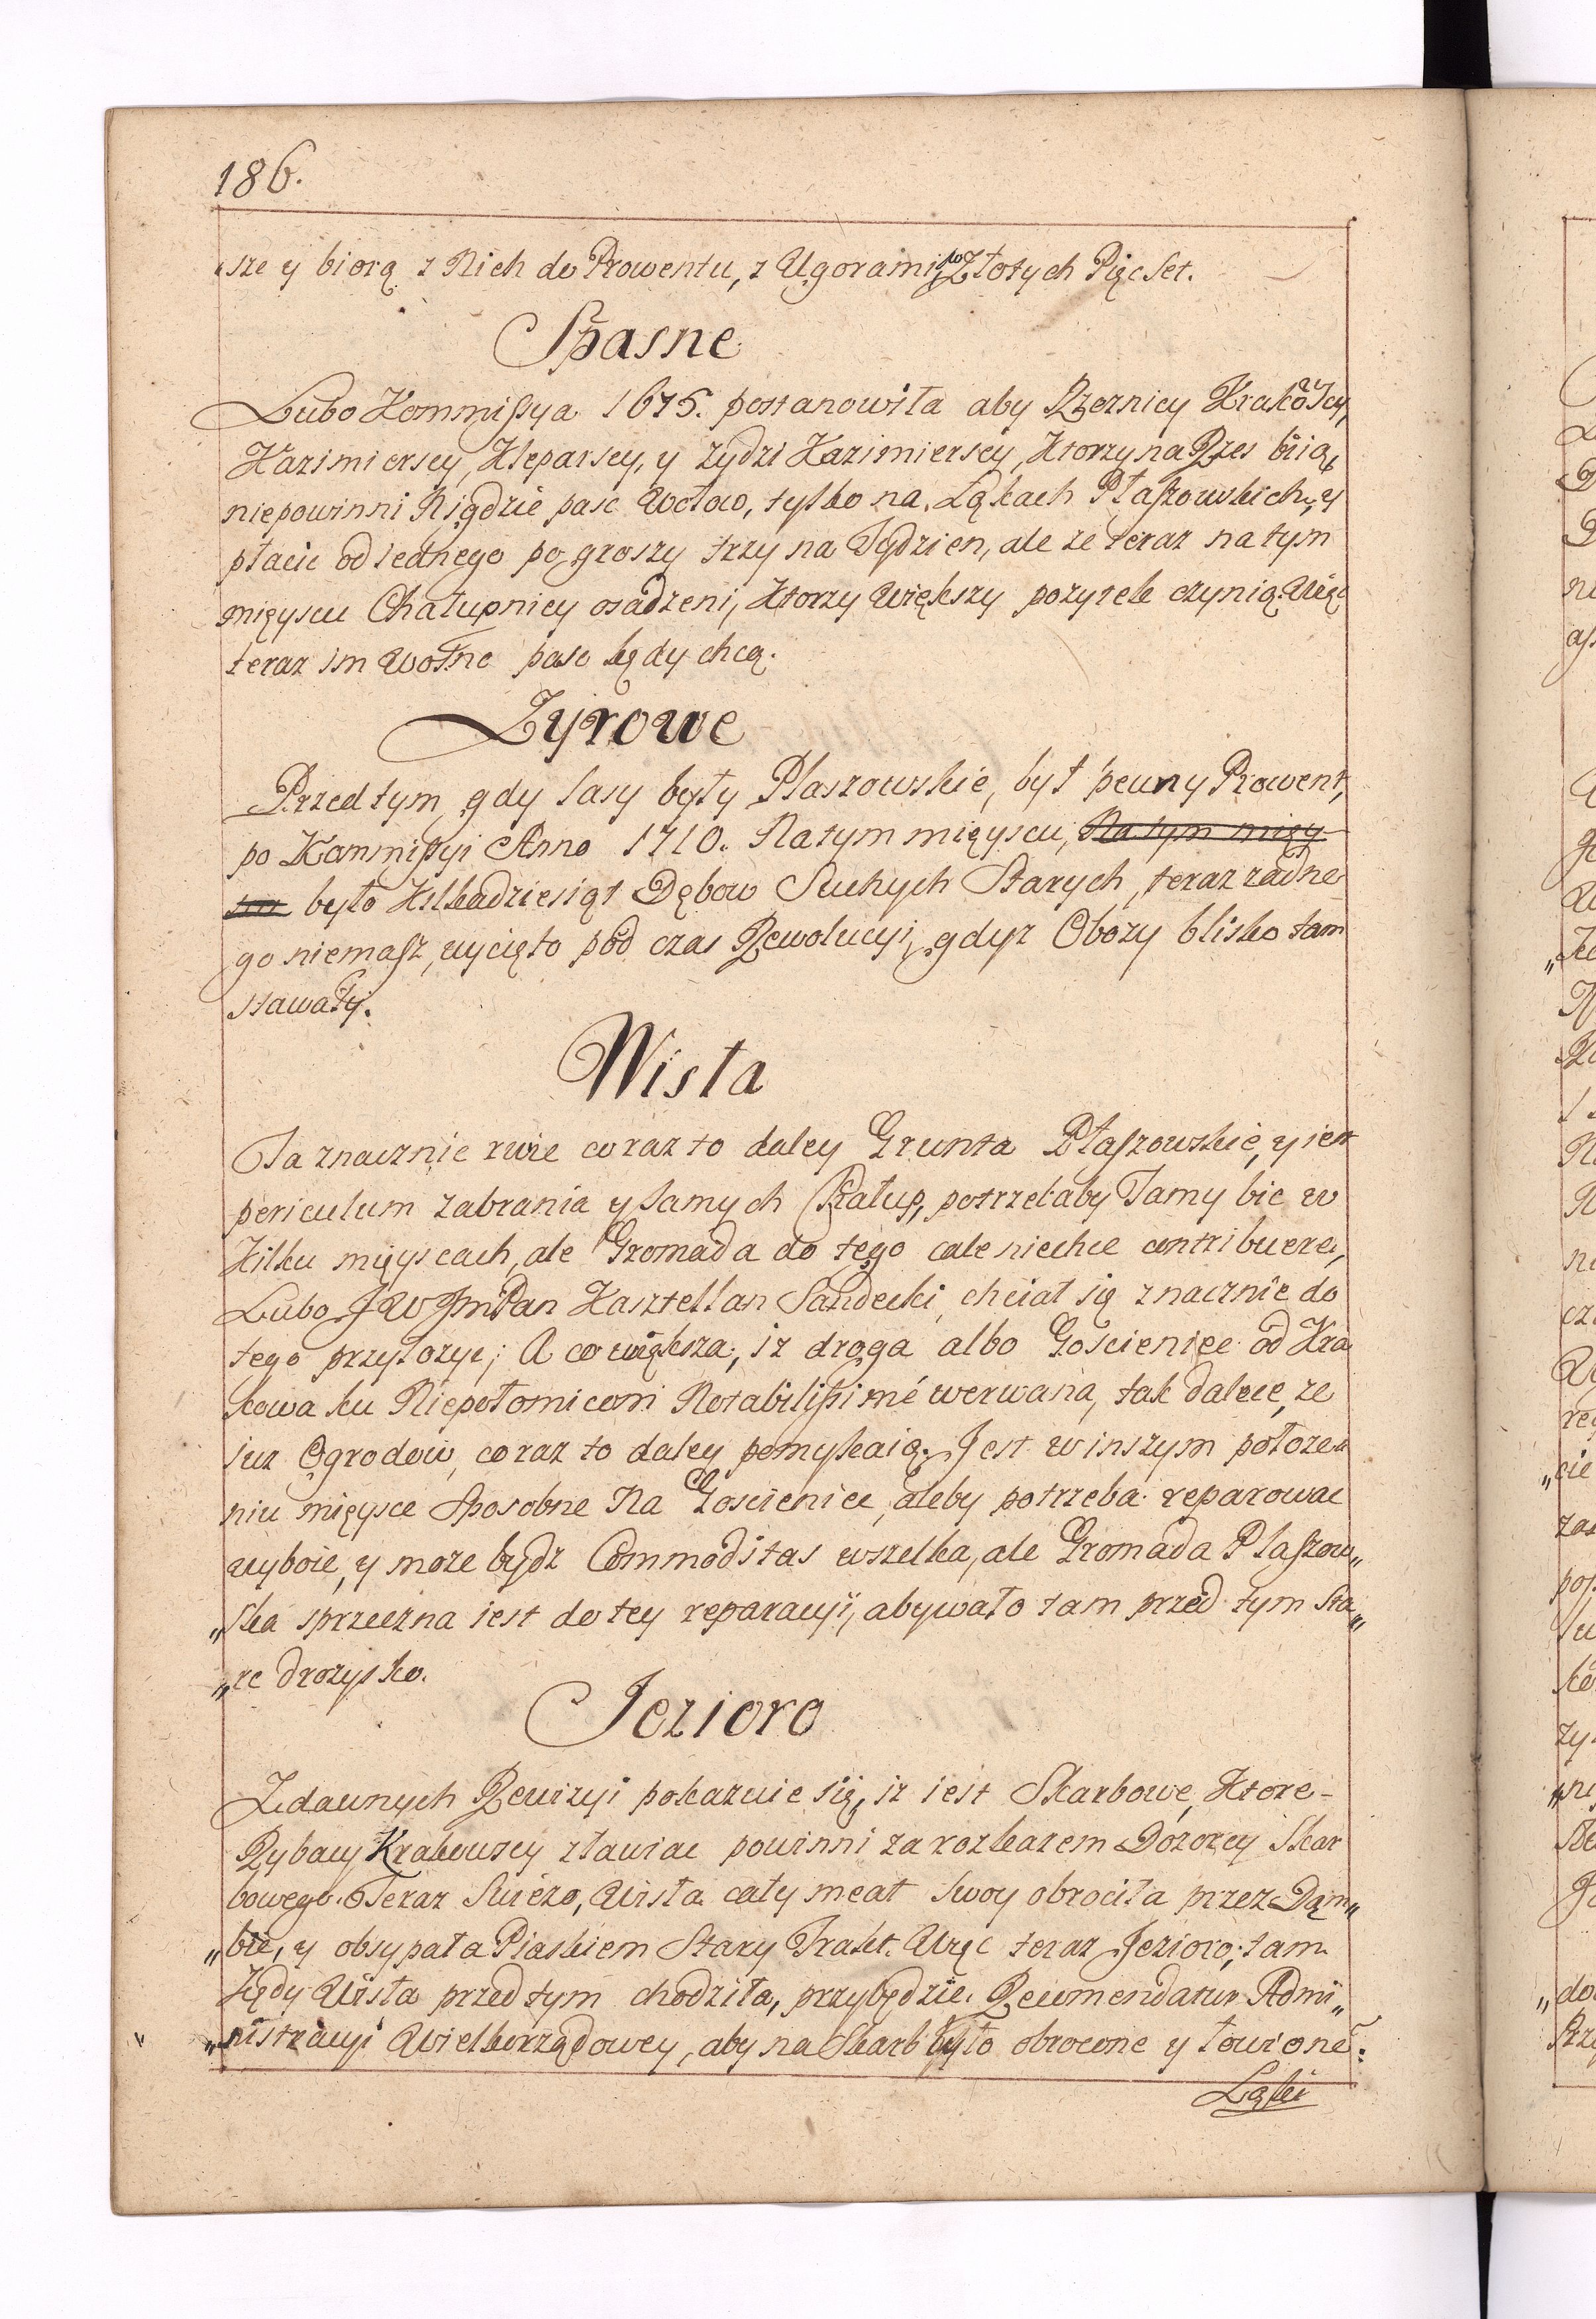 186.
sze y biorą z Nich do Prowentu, z Ugorami po Złotych Pięc Set.
Spasne
Lubo Kommissya 1675. postanowiła aby Rzeznicy Krakowscy,
Kazimiersey, Kleparsey, y Zydzi Kazimiersey, Ktorzy na Rzes biią,
niepowinni Nigdzie pasc Wołow, tylko na Łąkach Płaszowskich, y
płacic od iednego po groszy trzy na Tydzien, ale ze teraz na tym
mięyscu Chałupnicy osadzeni, Ktorzy Większy pozytek czynią. Więc
teraz im Wolne pasc kędy chcą.
Zyrowe
Przed tym, gdy lasy były Płaszowskie, był pewny Prowent,
po Kommissyi Anno 1710. Na tym mięyscu, Na tym mięy
scu było Kilkadziesiąt Dębow Suchych Starych, teraz zadne
go niemasz, wycięto pod czas Rewolucyi, gdyz Obozy blisko tam
stawały.
Wisła
Ta znacznie rwie co raz to daley Grunta Płaszowskie, y iest
periculum zabrania y samych Chałup, potrzebaby Tamy bic w
Kilku mięyscach, ale Gromada do tego cale niechce contribuere,
Lubo JW JmPan Kasztellan Sandecki chciał się znacznie do
tego przyłozyc; A co większa, iz droga albo Goscieniec od Kra
kowa ku Niepołomicom Notabilissimé werwana, tak dalece, ze
iuz Ogrodow, co raz to daley pomykaią. Jest w inszym połoze
niu mięysce Sposobne Na Goscieniec, aleby potrzeba reparowac
wyboie, y moze bydz Commoditas wszelka, ale Gromada Płaszow„
„ska sprzeczna iest do tey reparacyi, a bywało tam przed tym Sta„
„re drozysko.
Jezioro
Z dawnych Rewizyi pokazuie się, iz iest Skarbowe, Ktore-
Rybacy Krakowscy zławiac powinni za rozkazem Dozorcy Skar
bowego. Teraz Swiezo, Wisła cały meat Swoy obrociła przez Dąm„
„bie, y obsypała Piaskiem Stary Trakt. Więc teraz Jezioro, tam
Kędy Wisła przed tym chodziła, przybędzie. Recomendatur Admi„
„nistracyi Wielkorządowey, aby na Skarb było obrocone y łowione:
Łąki